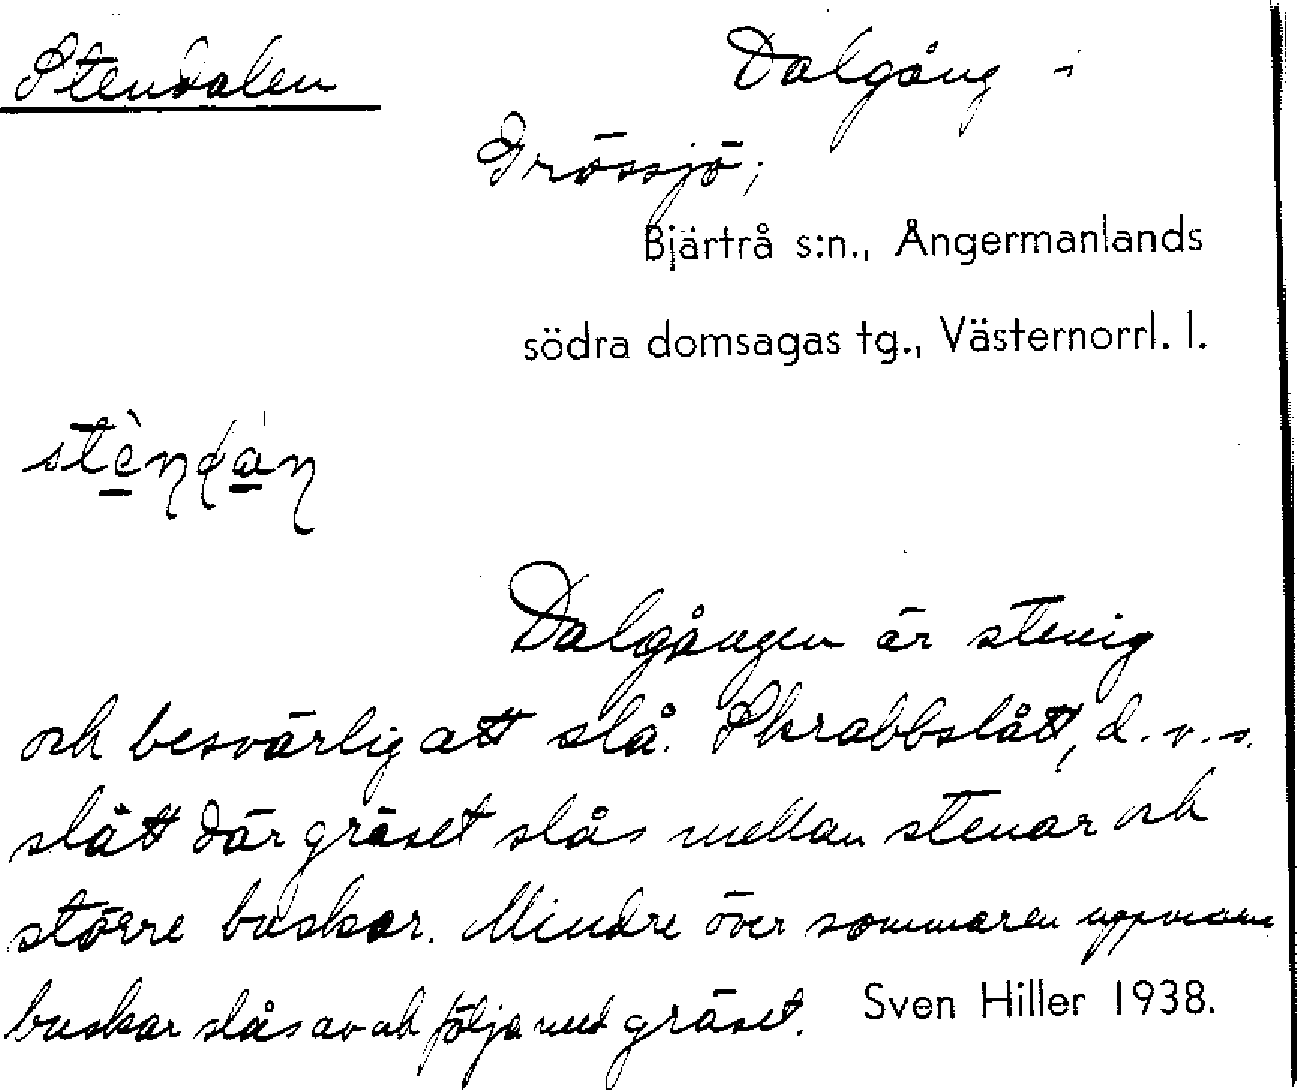 Stendalen Dalgång i
Grössjö;
Bjärtrå s:n., Ångermanlands
södra domsagas tg., Västernorrl. l.
stèndàn
Dalgången är stenig
och besvärlig att slå. Skrabbslått, d.v.s.
slått där gräset slås mellan stenar och
större buskar. Mindre över sommaren uppvuxna
buskar slås av och följa med gräset. Sven Hiller 1938.